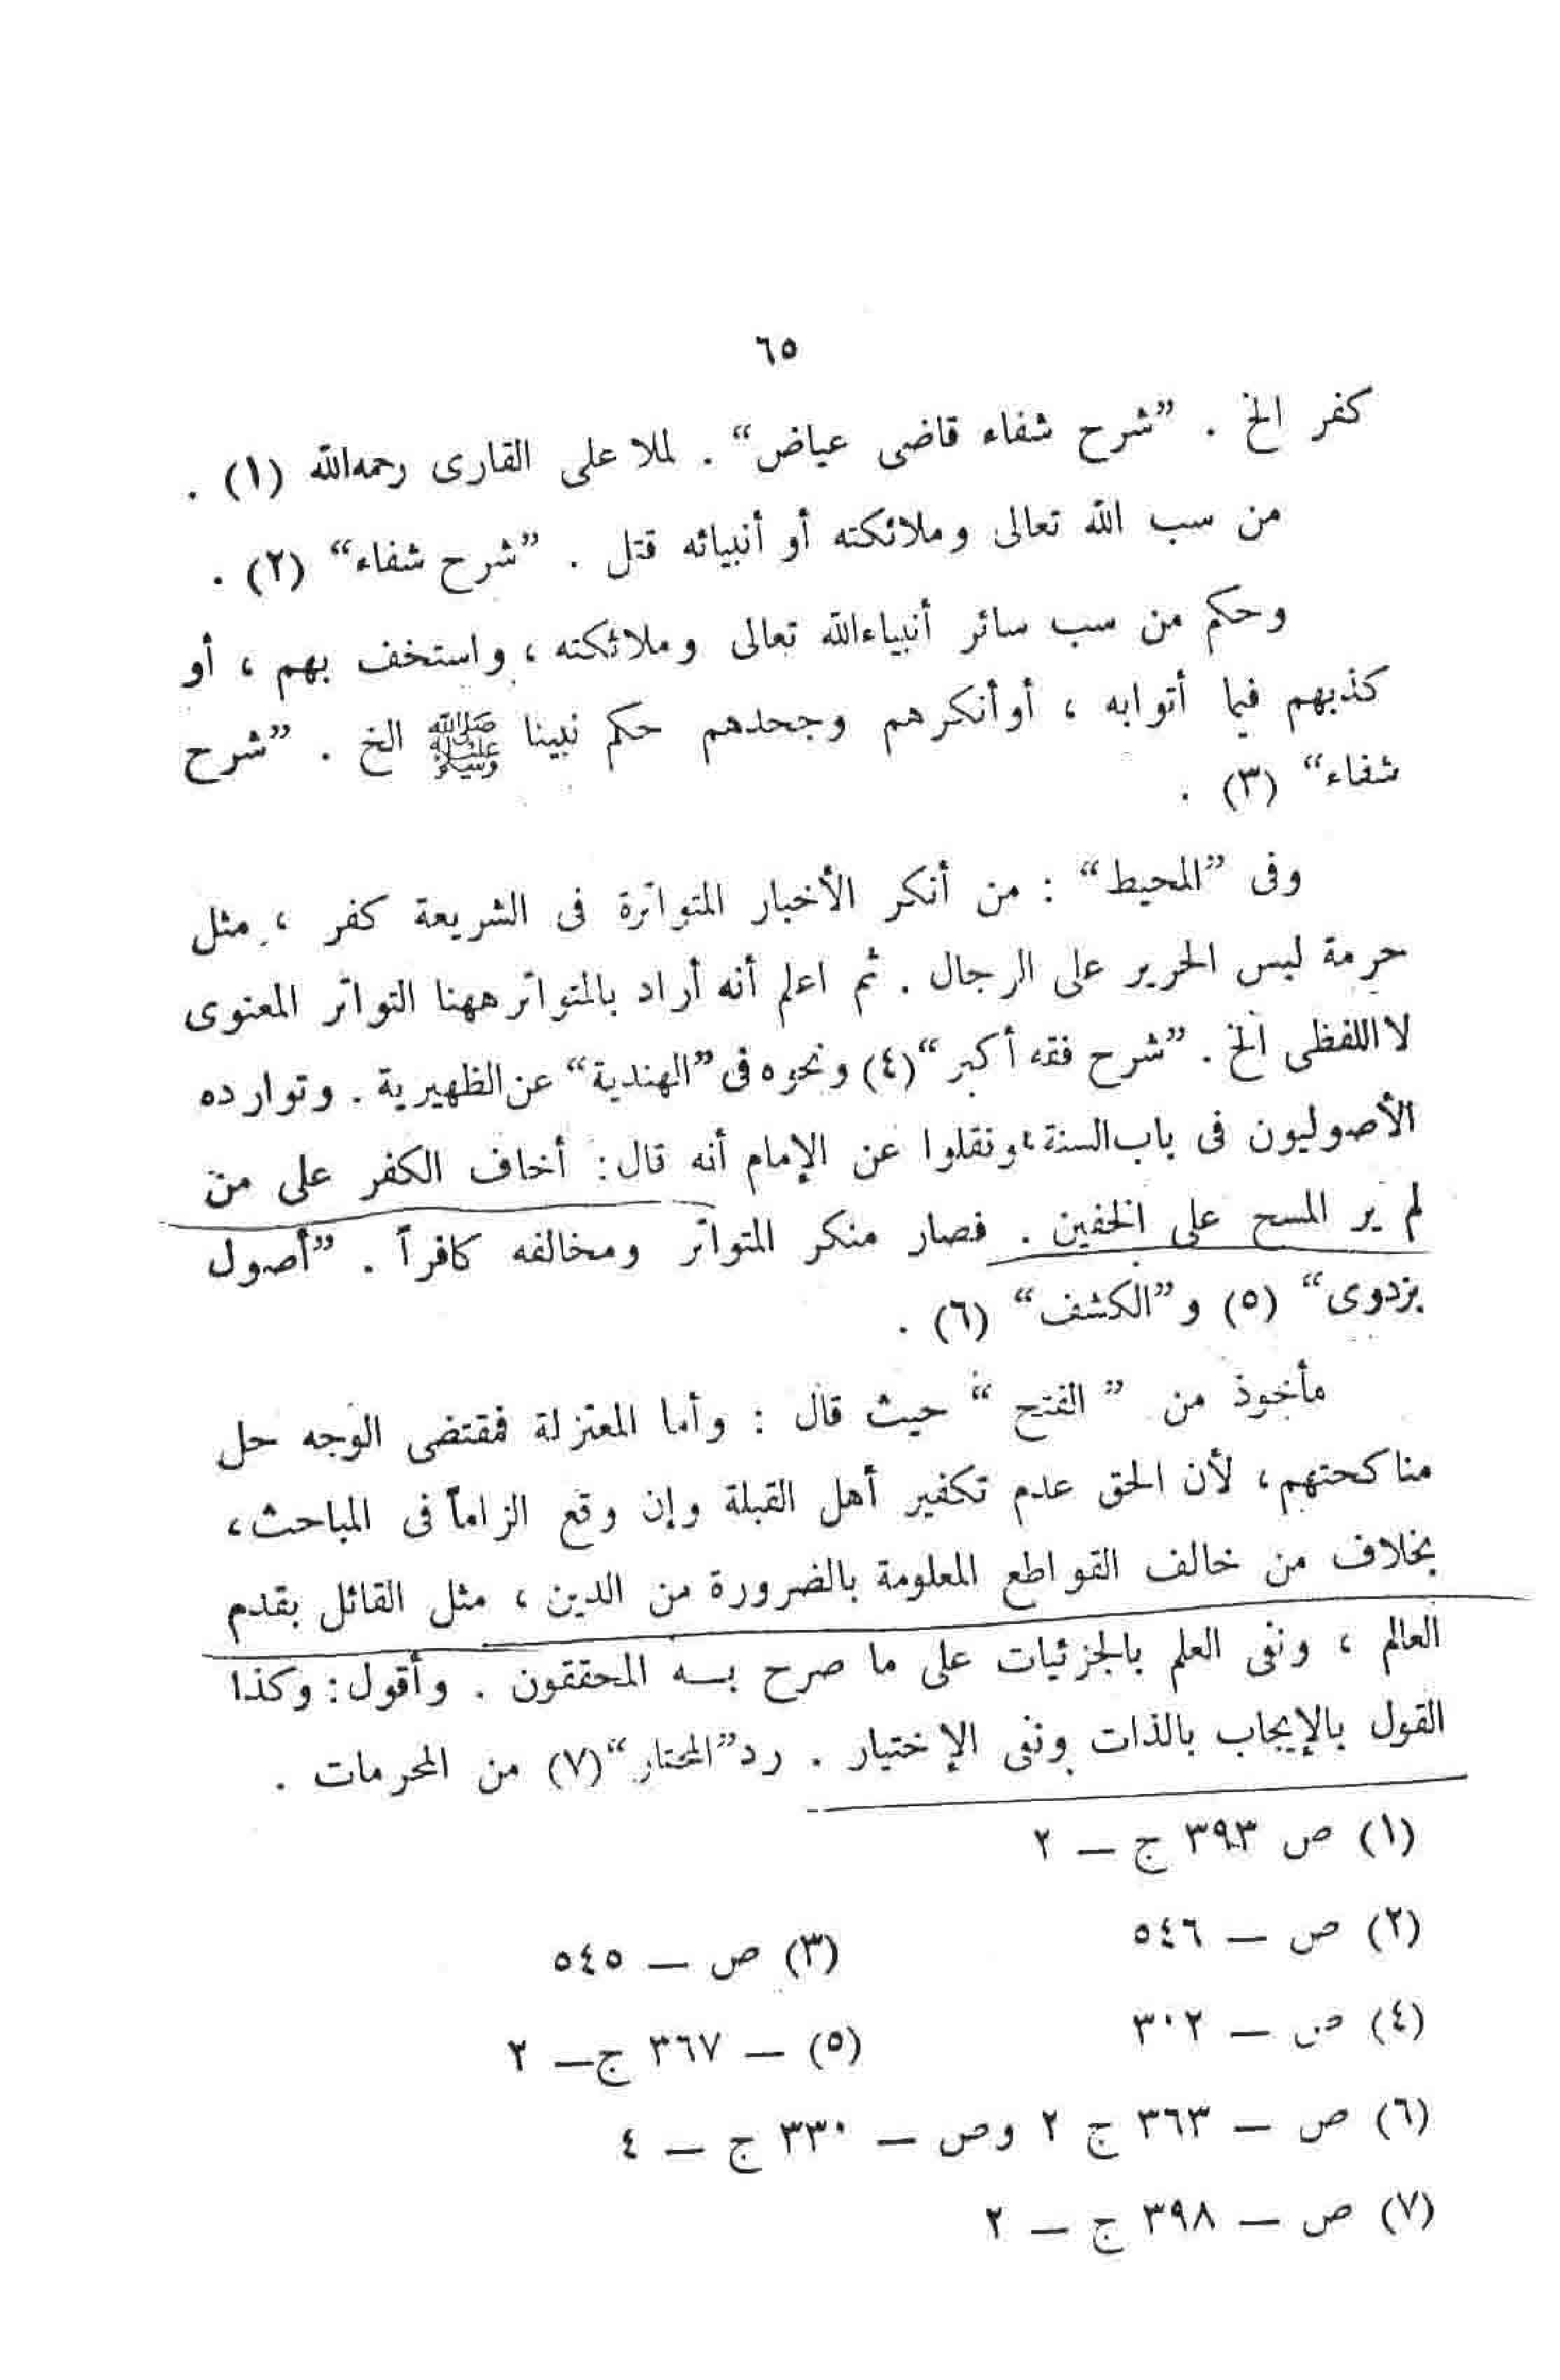 ٦٥
كفر الخ . ”شرح شفاء قاضى عياض“ . لملا على القارى رحمه الله (١) .
من سب الله تعالى وملائكته أو أنبيائه قتل . ”شرح شفاء“ (٢) .
وحكم من سب سائر أنبياءالله تعالى وملائكته ، واستخف بهم ، أو
كذبهم فيما أتوا به ، أو أنكرهم وجحدهم حكم نبينا ﷺ الخ . ”شرح
شفاء“ (٣) .
وفى ”المحيط“ : من أنكر الأخبار المتواترة فى الشريعة كفر ، مثل
حرمة لبس الحرير على الرجال . ثم اعلم أنه أراد بالمتواتر ههنا التواتر المعنوى
لا اللفظى الخ . ”شرح فقه أكبر“ (٤) ونحوه فى ”الهندية“ عن الظهيرية . وتوارده
الأصوليون فى باب السنة ، ونقلوا عن الإمام أنه قال : أخاف الكفر على من
لم ير المسح على الخفين . فصار منكر المتواتر ومخالفه كافراً . ”أصول
بزدوى“ (٥) و”الكشف“ (٦) .
مأخوذ من ”الفتح“ حيث قال : وأما المعتزلة فمقتضى الوجه حل
مناكحتهم ، لأن الحق عدم تكفير أهل القبلة وإن وقع الزاماً فى المباحث ،
بخلاف من خالف القواطع المعلومة بالضرورة من الدين ، مثل القائل بقدم
العالم ، ونفى العلم بالجزئيات على ما صرح بـه المحققون . وأقول : وكذا
القول بالإيجاب بالذات ونفى الإختيار . رد ”المحتار“ (٧) من المحرمات .
(١) ص ٣٩٣ ج — ٢
(٢) ص — ٥٤٦ (٣) ص — ٥٤٥
(٤) ص — ٣٠٢ (٥) — ٣٦٧ ج — ٢
(٦) ص — ٣٦٣ ج ٢ وص — ٣٣٠ ج — ٤
(٧) ص — ٣٩٨ ج — ٢